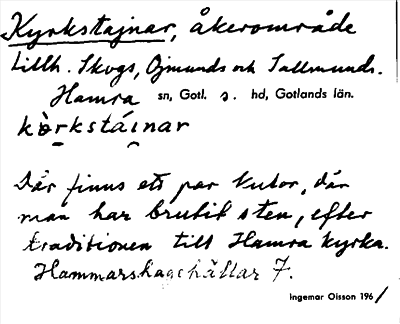 Kyrkstajnar, åkerområde
tillh. Skogs, Ojmunds och Sallmunds.
Hamra sn, Gotl. s. hd, Gotlands län.
kòrkstáinar
Där finns ett par kulor, där
man har brutit sten, efter
traditionen till Hamra kyrka.
Hammarshagehällar 7.
Ingemar Olsson 1961